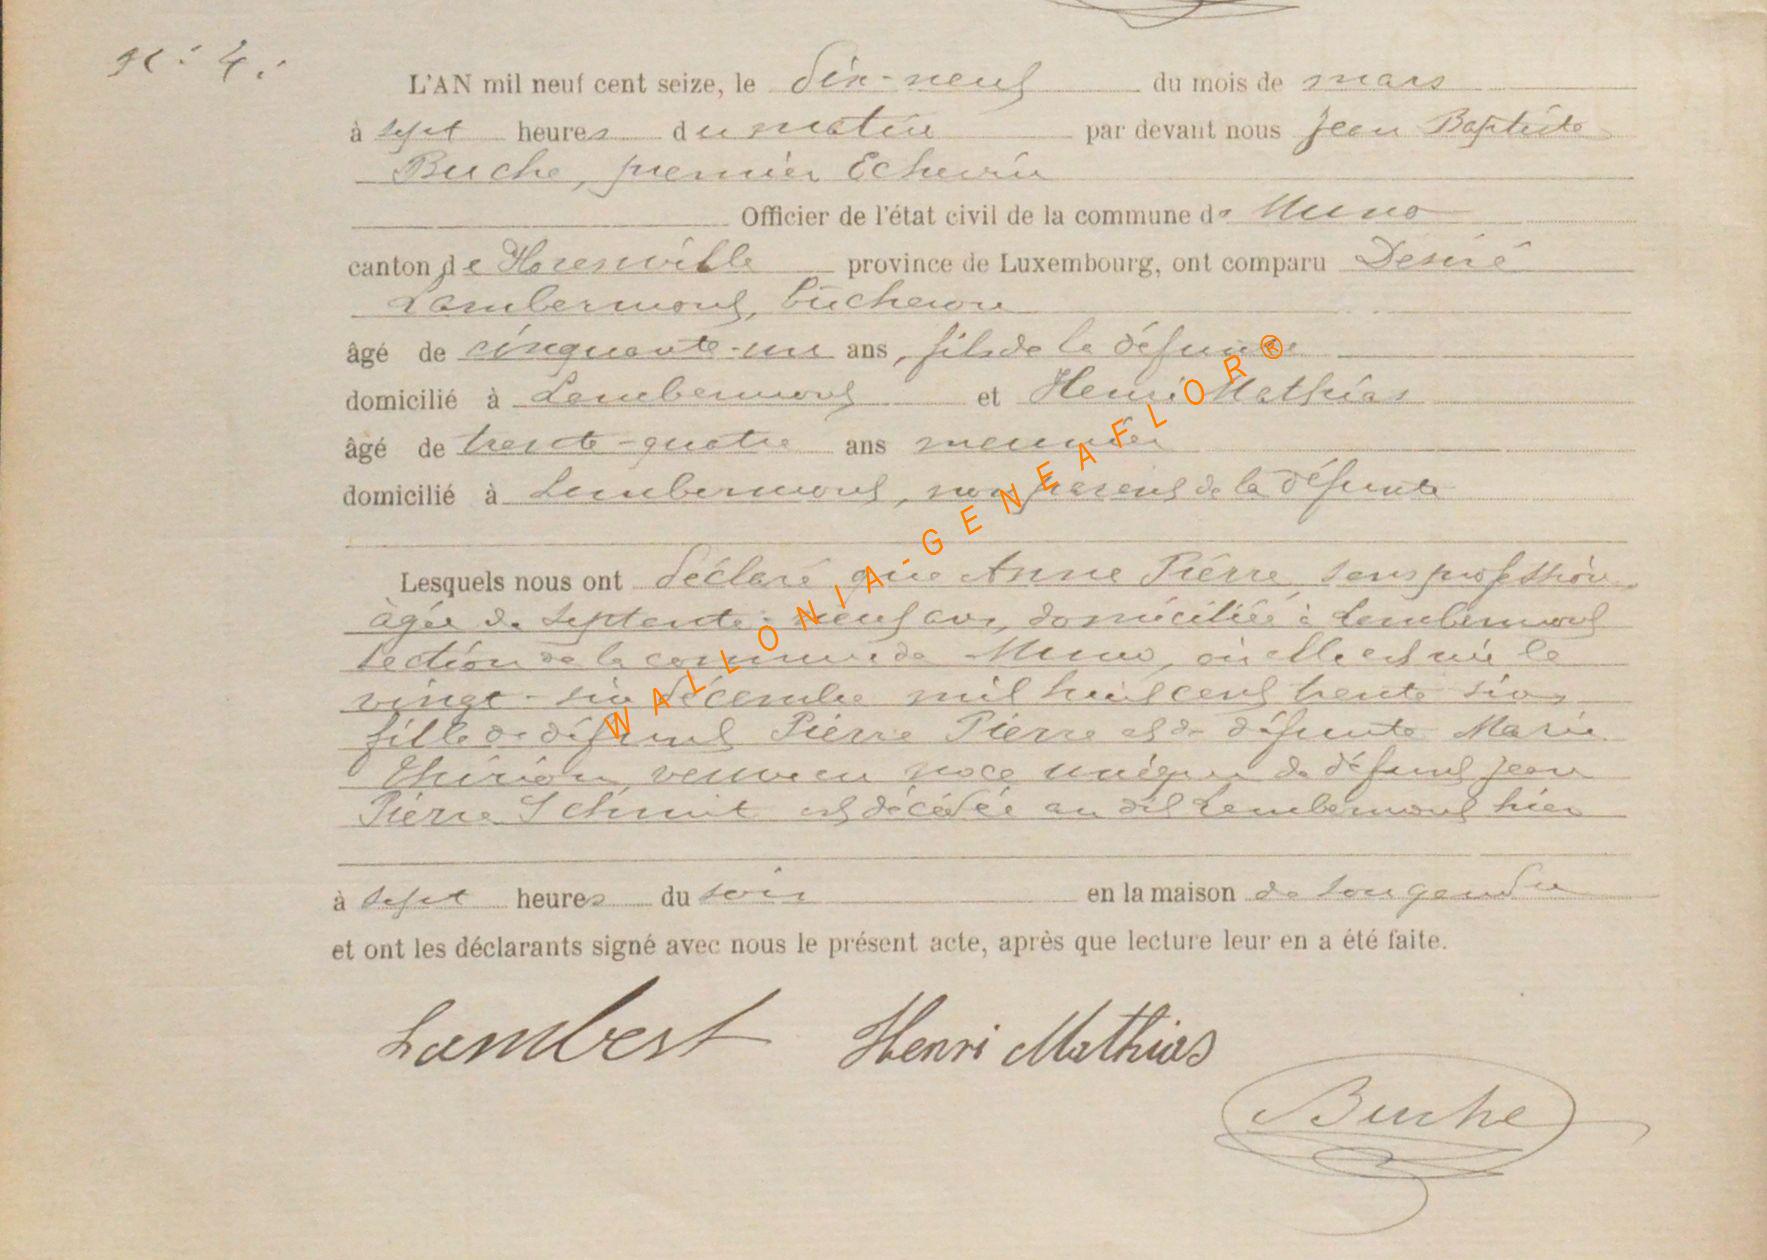 N° 4.
L'AN mil neuf cent seize, le dix-neuf du mois de mars
à sept heures du matin par devant nous Jean Baptiste
Buche, premier Echevin
Officier de l'état civil de la commune de Muno
canton de Florenville province de Luxembourg, ont comparu Désiré
Lambermont, bûcheron
âgé de cinquante-un ans, fils de la défunte
domicilié à Lambermont et Henri Mathias
âgé de trente-quatre ans meunier
domicilié à Lambermont, non parent de la défunte
Lesquels nous ont déclaré que Anne Pierre, sans profession,
âgée de septante-neuf ans, domiciliée à Lambermont
section de la commune de Muno, où elle est née le
vingt-six décembre mil huit cent trente six,
fille de défunt Pierre Pierre et de défunte Marie
Thirion, veuve en noce unique de défunt Jean
Pierre Schmit est décédée au dit Lambermont hier
à sept heures du soir en la maison de son gendre
et ont les déclarants signé avec nous le présent acte, après que lecture leur en a été faite.
Lambert Henri Mathias
Buche
WALLONIA-GENEAFLOR®